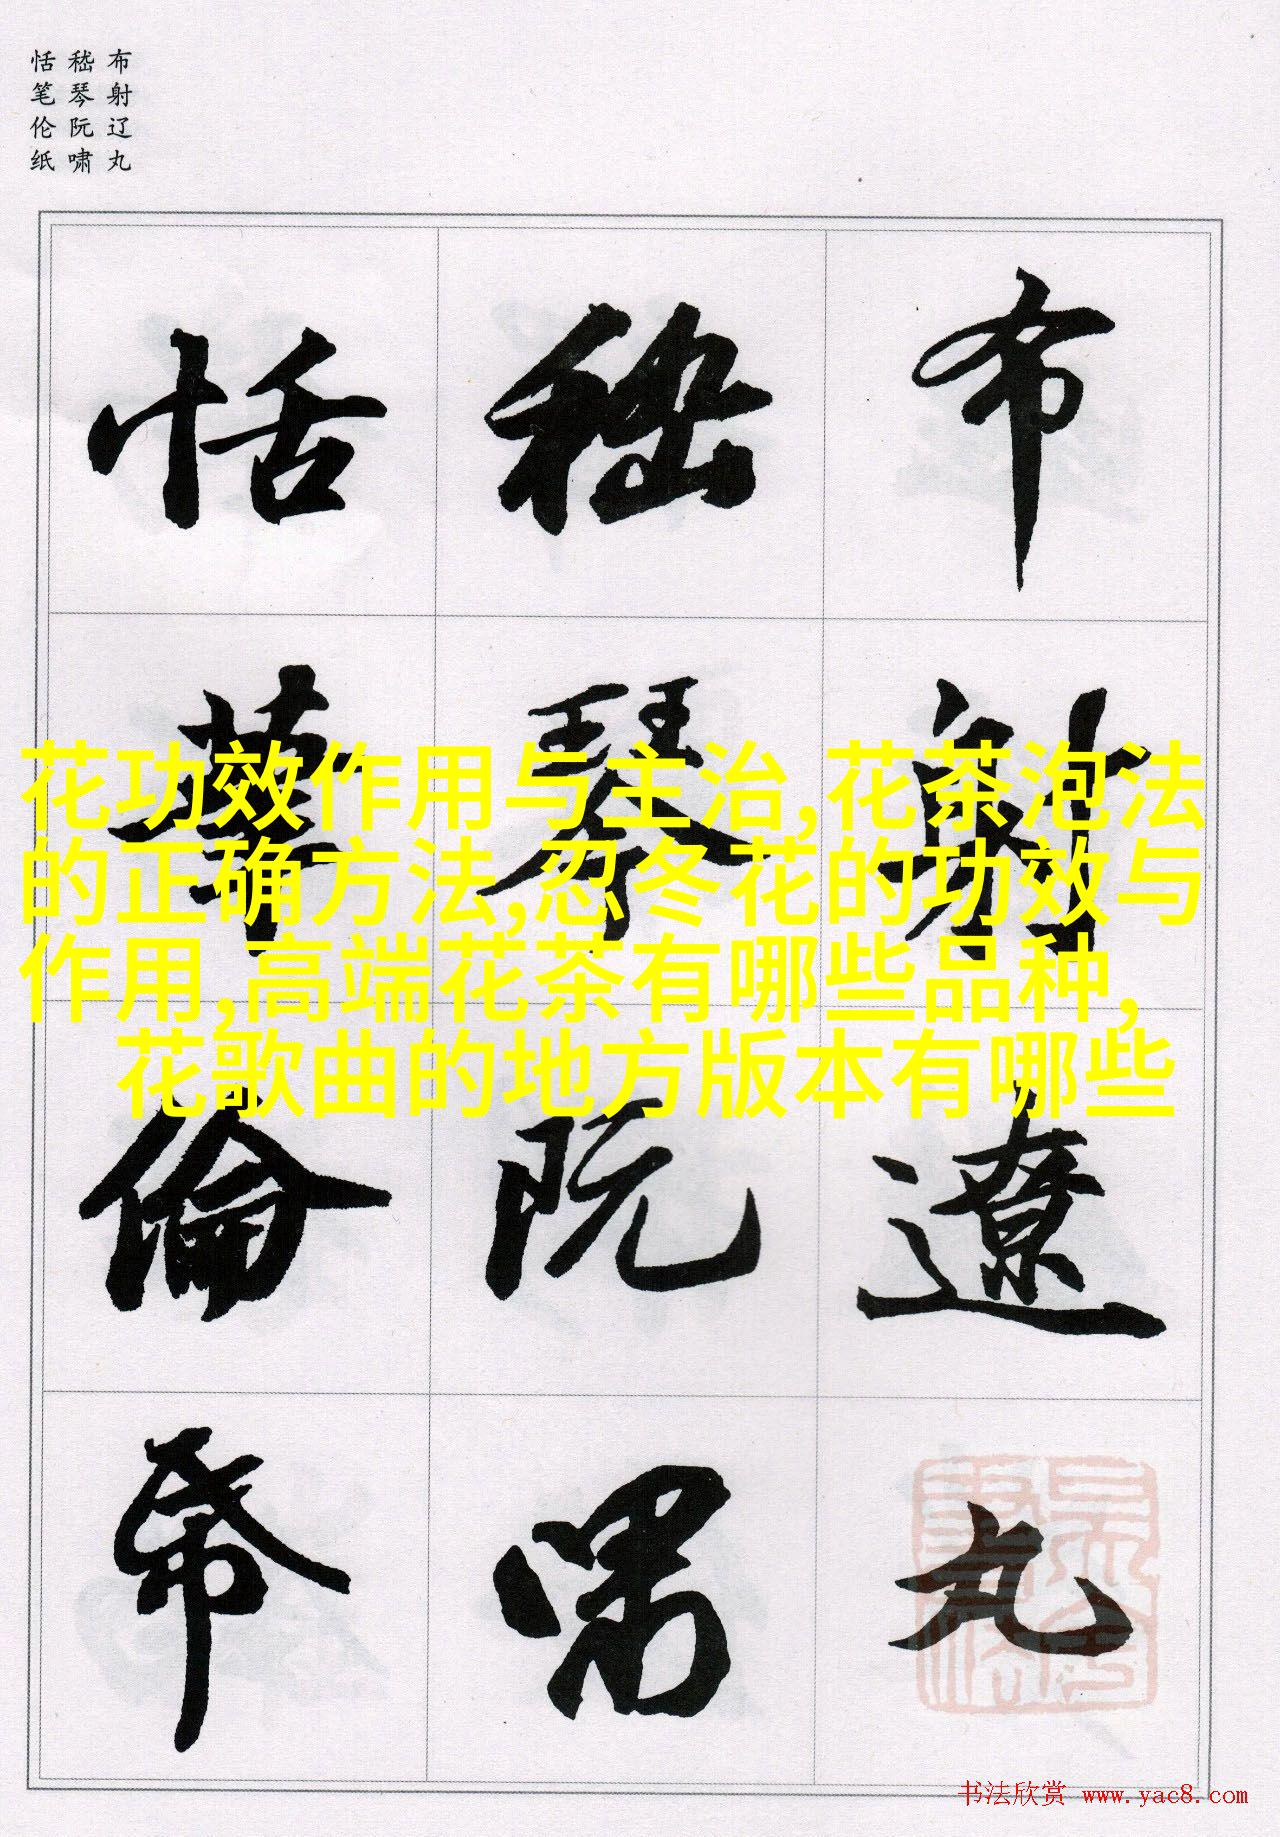 布射辽丸
嵇琴阮啸
恬笔伦纸
布射遼丸
嵇琴阮嘯
恬筆倫帋
花功效作用与主治,花茶泡法
的正确方法,忍冬花的功效与
作用,高端花茶有哪些品种,
花歌曲的地方版本有哪些
书法欣赏 www.yac8.com